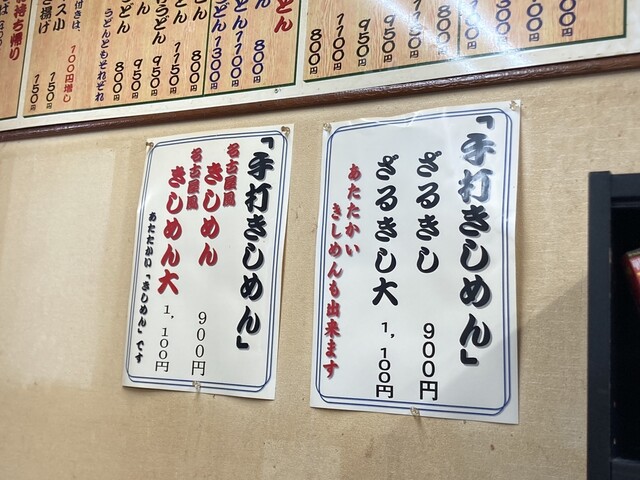 「手打きしめん」
ざるきし 900円
ざるきし大 1,100円
あたたかい
きしめんも出来ます
「手打きしめん」
名古屋風
きしめん 900円
名古屋風
きしめん大 1,100円
あたたかい「きしめん」です
どん
うどん 800円
うどん 1300円
うどん 800円
1150円
うどん 950円
950円
どん 800円
うどんともそれぞれ
100円増し
150円
き揚げ 150円
持ち帰り
800円
1100円
950円
950円
1150円
800円